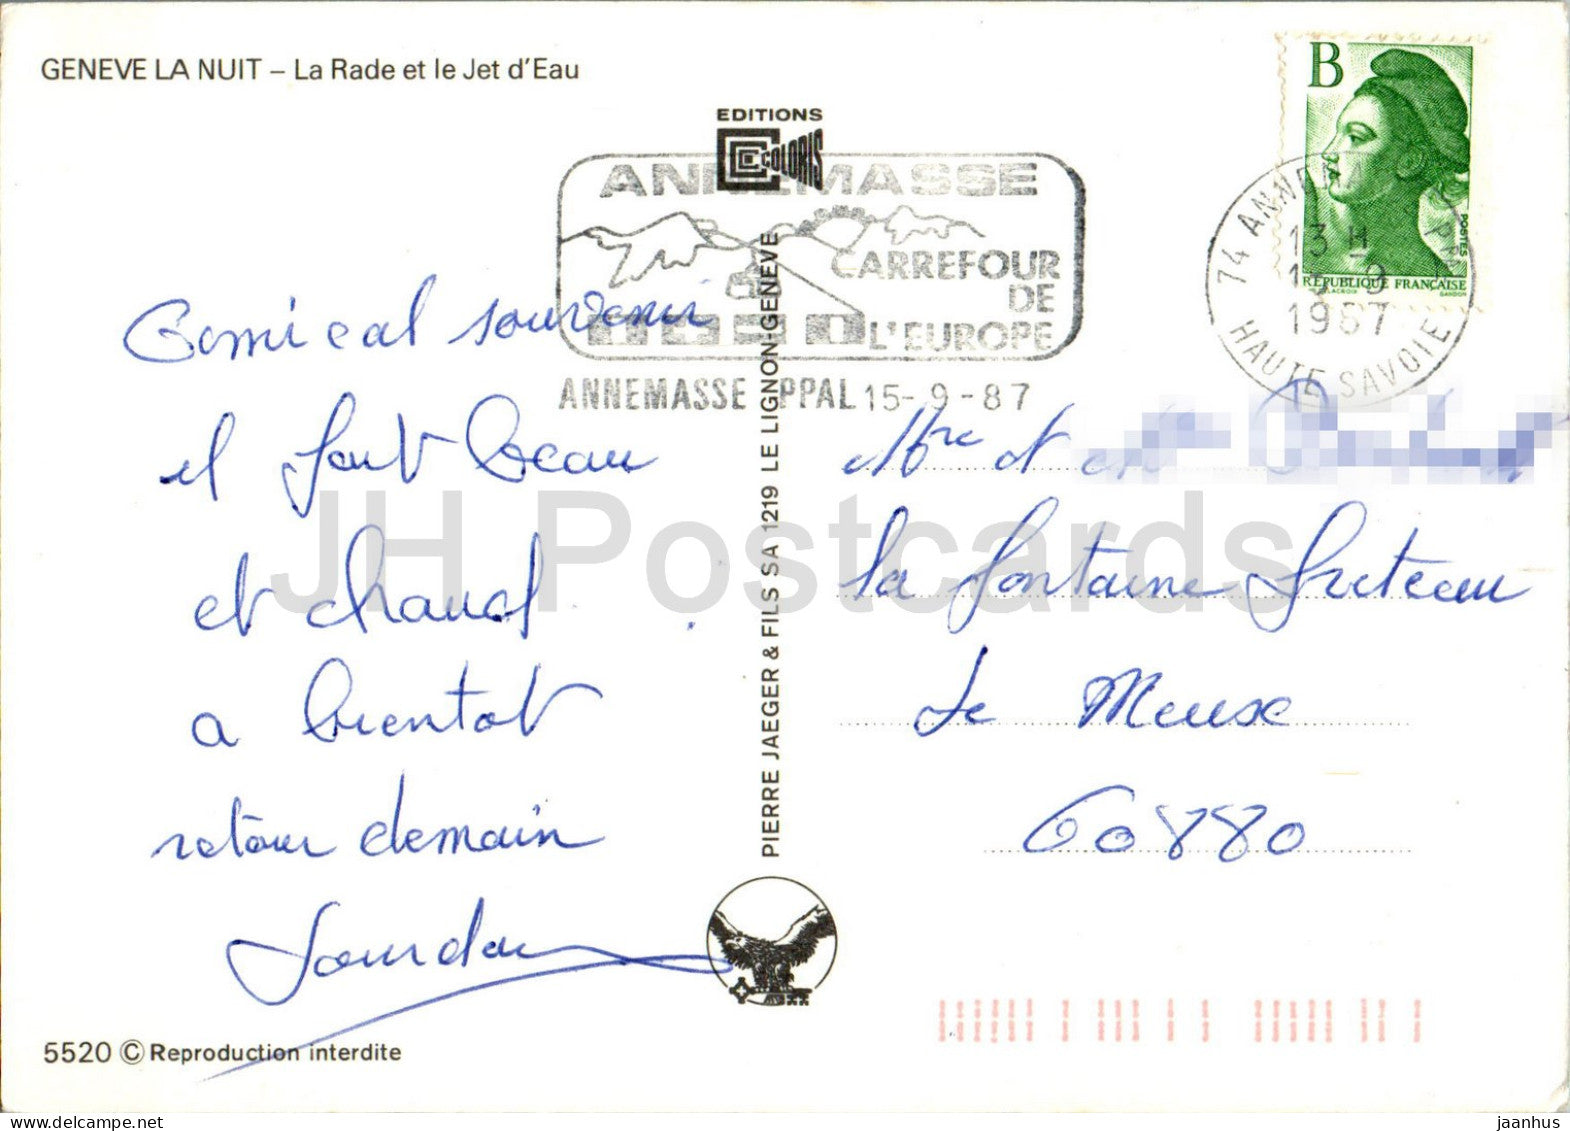 GENEVE LA NUIT – La Rade et le Jet d'Eau
EDITIONS
COLORIS
ANNEMASSE
CARREFOUR
DE
L'EUROPE
ANNEMASSE PPAL 15-9-87
B
POSTES
RÉPUBLIQUE FRANÇAISE
LACROIX GANDON
74 ANNEM
13 H
15-9
1987
HAUTE SAVOIE
Amical souvenir
il fait beau
et chaud
a bientot
retour demain
Jourdan
Mre et
La fontaine Freteau
Le Meux
60880
PIERRE JAEGER & FILS SA 1219 LE LIGNON-GENEVE
5520 © Reproduction interdite
JH Postcards
jaanhus